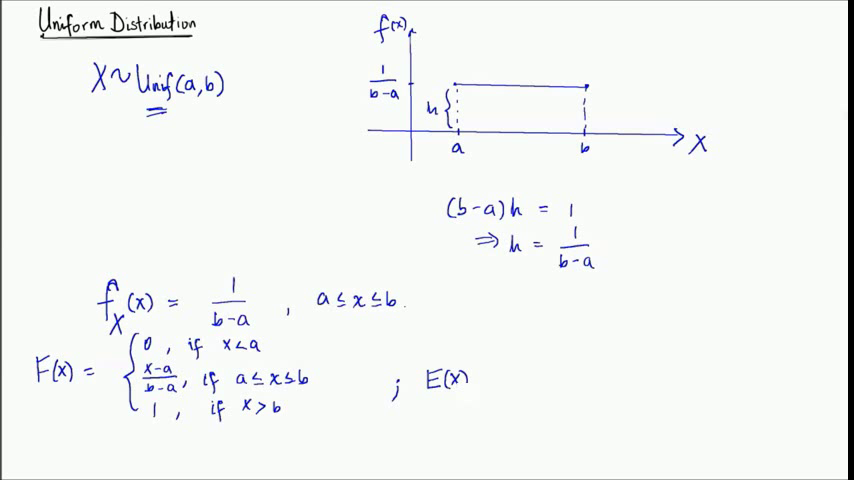 Uniform Distribution
X ~ Unif(a,b)
f(x)
1/(b-a)
h {
a
b
X
(b-a)h = 1
⇒ h = 1/(b-a)
f_X(x) = 1/(b-a) , a ≤ x ≤ b.
F(x) = { 0 , if x < a
(x-a)/(b-a) , if a ≤ x ≤ b
1 , if x > b
; E(x)